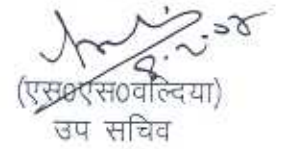 8.2.08
(एस0एस0वल्दिया)
उप सचिव